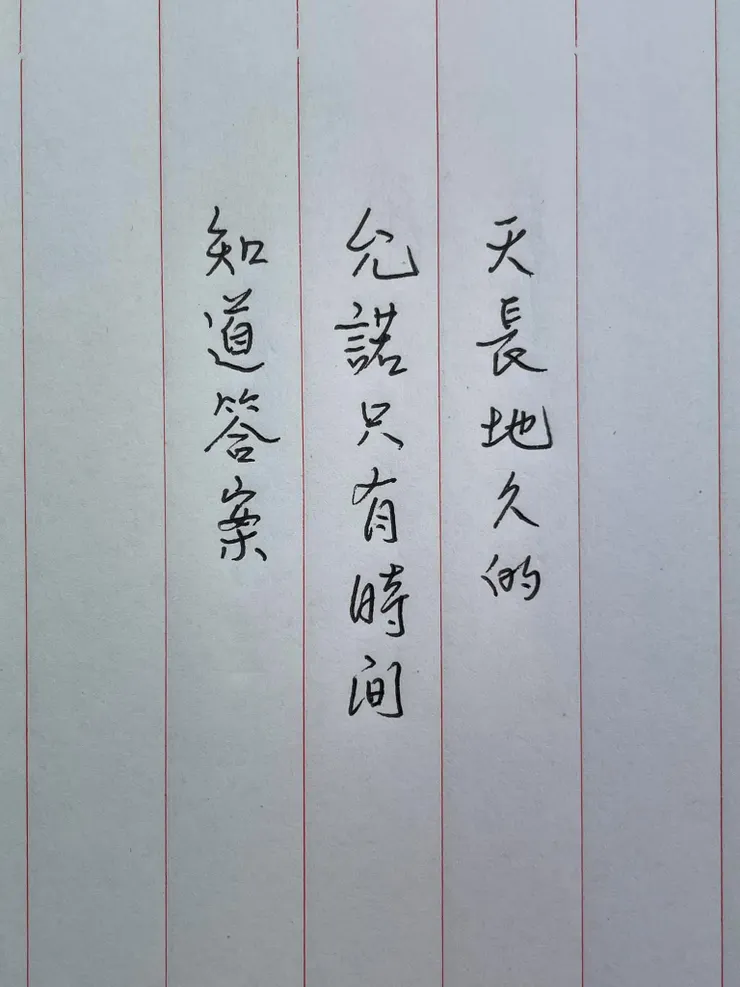 天長地久的
允諾只有時间
知道答案